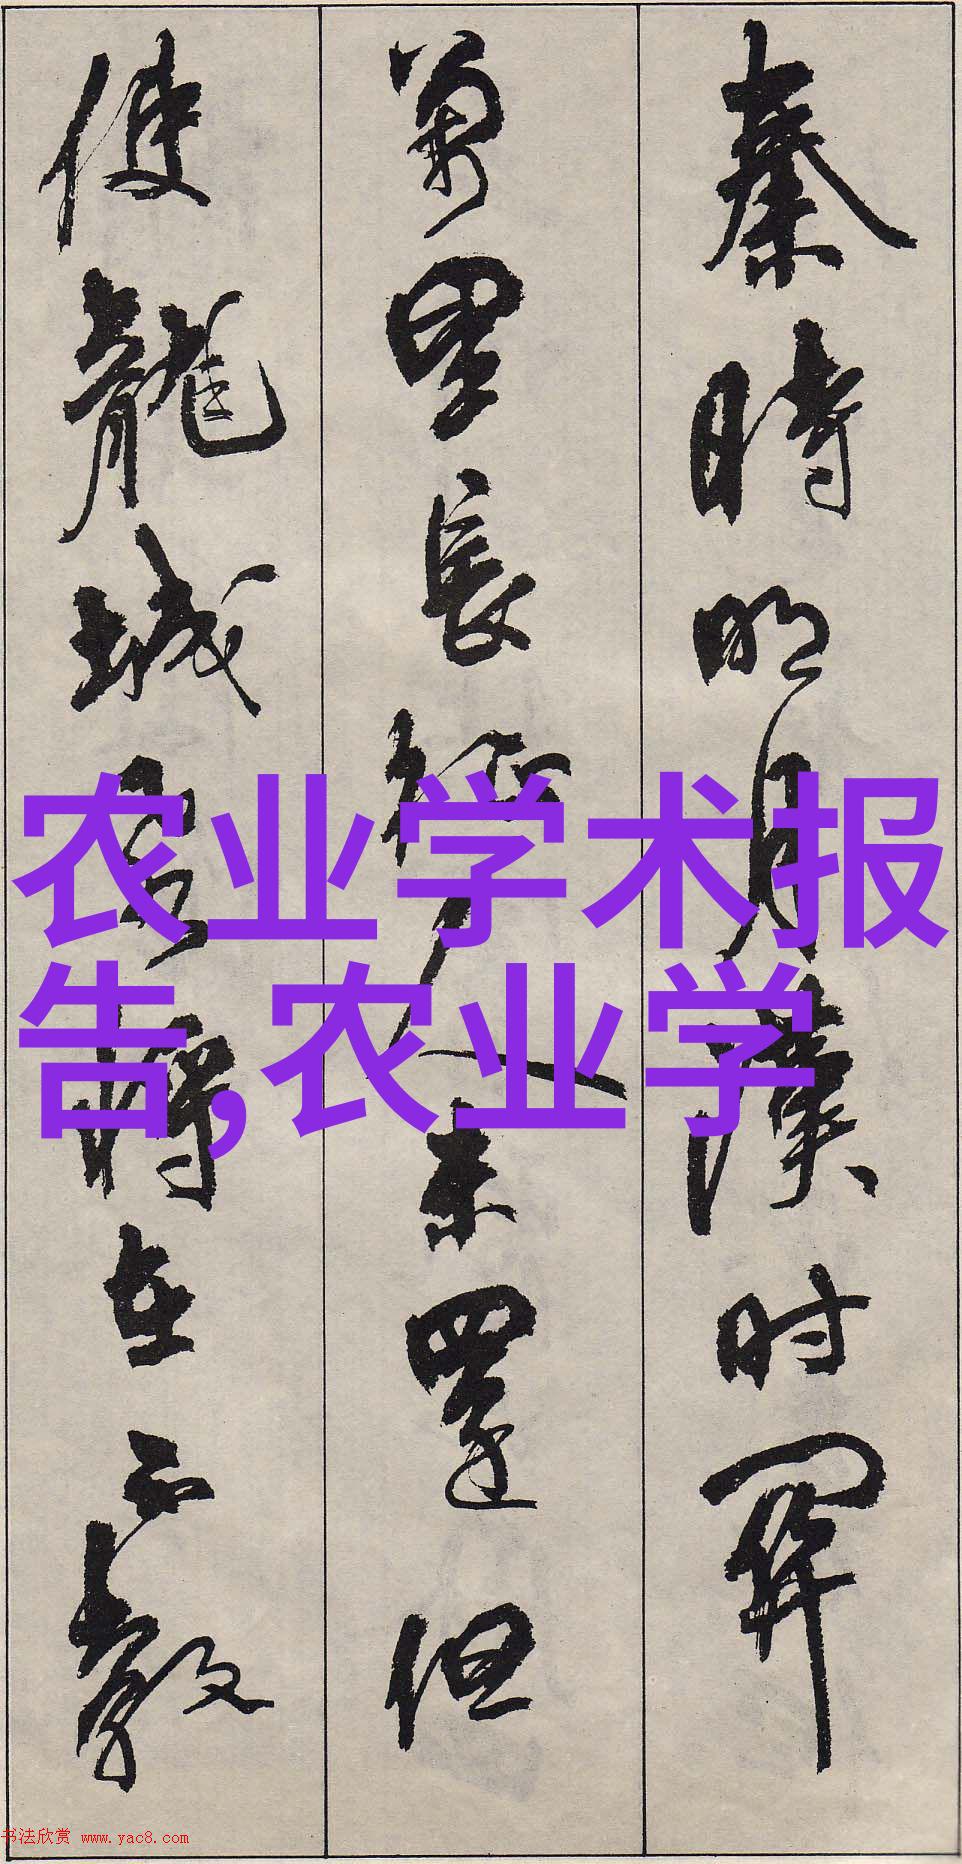 秦時明月漢时関
萬里長征人未還但
使龍城飛將在不教
农业学术报
告,农业学
书法欣赏 www.yac8.com